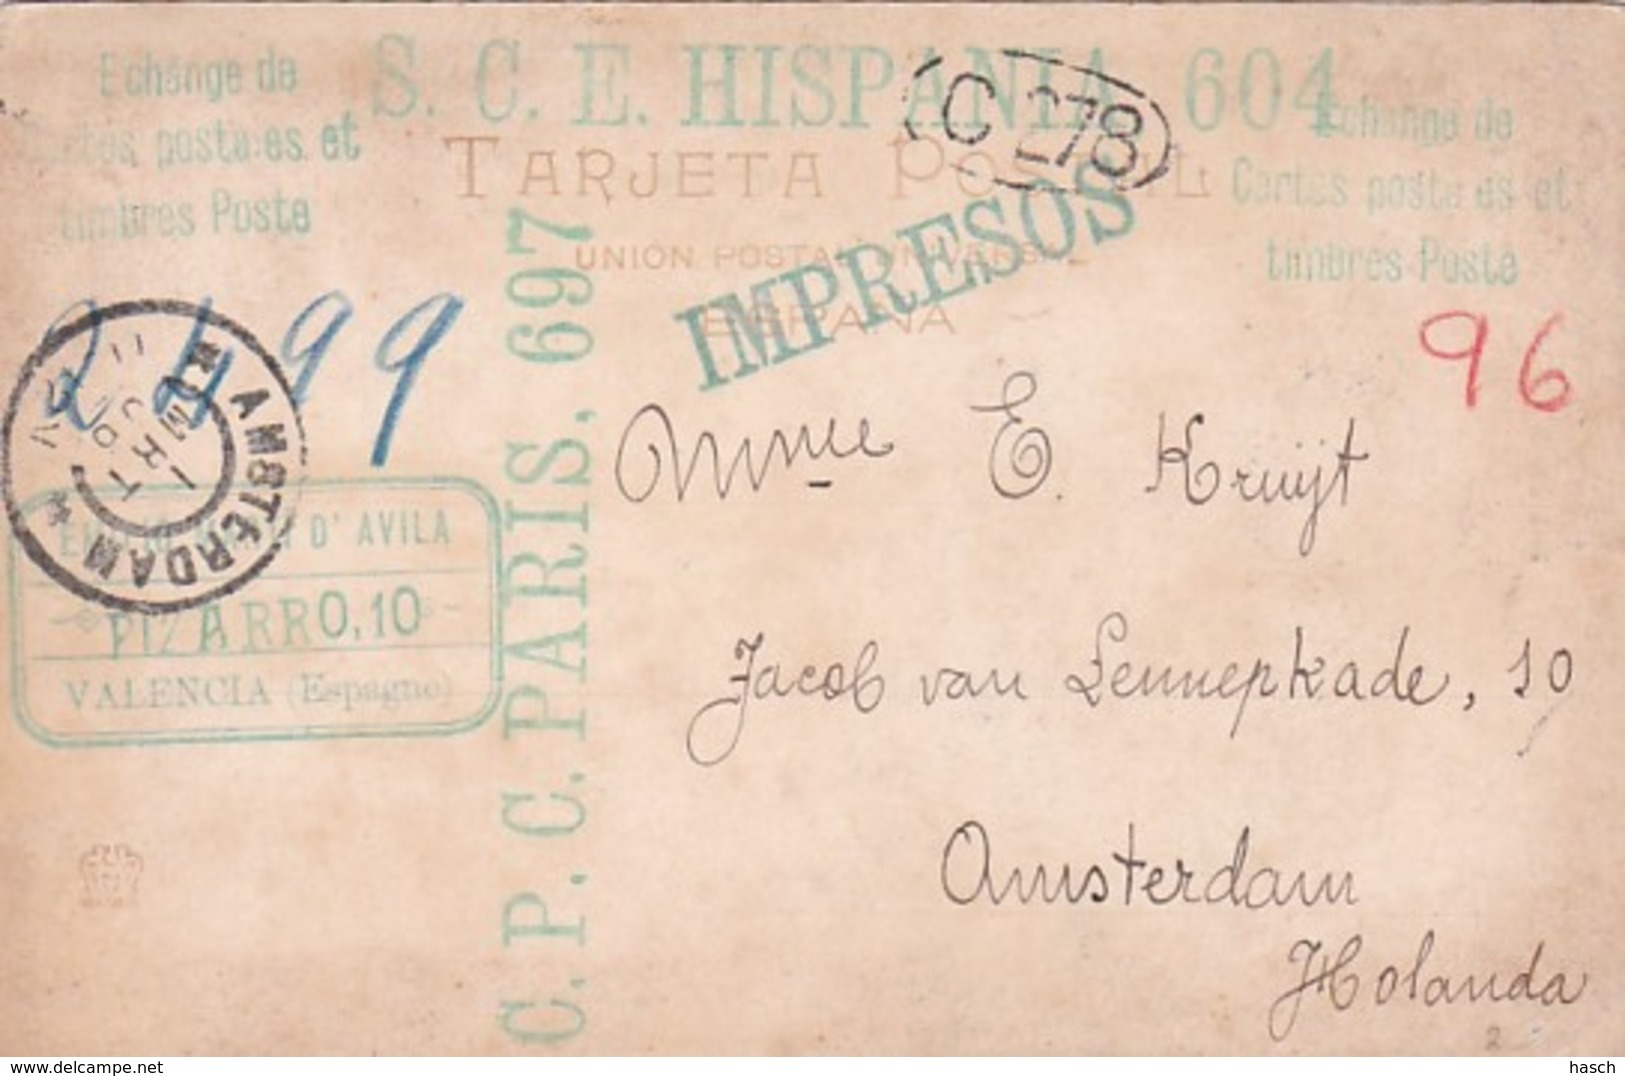 S. C. E. HISPANIA 604
Echange de
Cartes postales et
timbres Poste
C 278
Echange de
Cartes postales et
timbres Poste
TARJETA POSTAL
UNION POSTAL UNIVERSAL
ESPAÑA
IMPRESOS
2499
96
AMSTERDAM
C. P. C. PARIS, 697
D' AVILA
PIZARRO, 10
VALENCIA (Espagne)
Mme E. Kruijt
Jacob van Lennepkade, 10
Amsterdam
Holanda
2
hasch